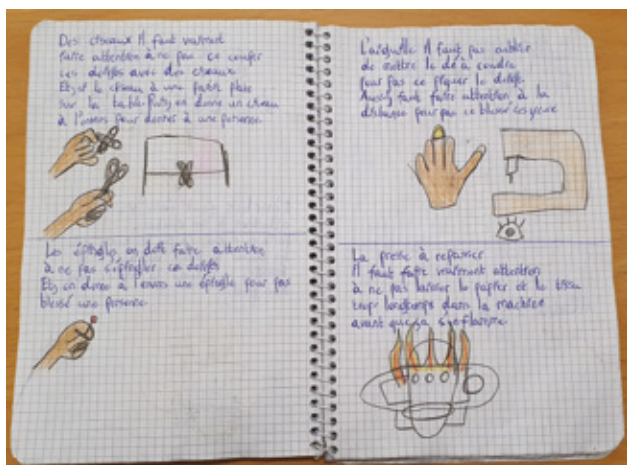 Des ciseaux Il faut vraiment
faire attention à ne pas ce couper
ces doigts avec des ciseaux
Et le ciseau à une place
sur la table en donne un ciseau
à l'envers pour donner à une personne.
Les épingles on doit faire attention
à ne pas s'épingler ces doigts
Et on donne à l'envers une épingle pour pas
blessé une personne.
L'aiguille Il faut pas oublier
de mettre le dé à coudre
pour pas ce piquer le doigt.
Aussi faut faire attention à la
distance pour pas ce blesser ces yeux
La presse à repasser
Il faut faire vraiment attention
à ne pas laisser le papier et le tissu
trop longtemps dans la machine
avant que ça s'enflamme.